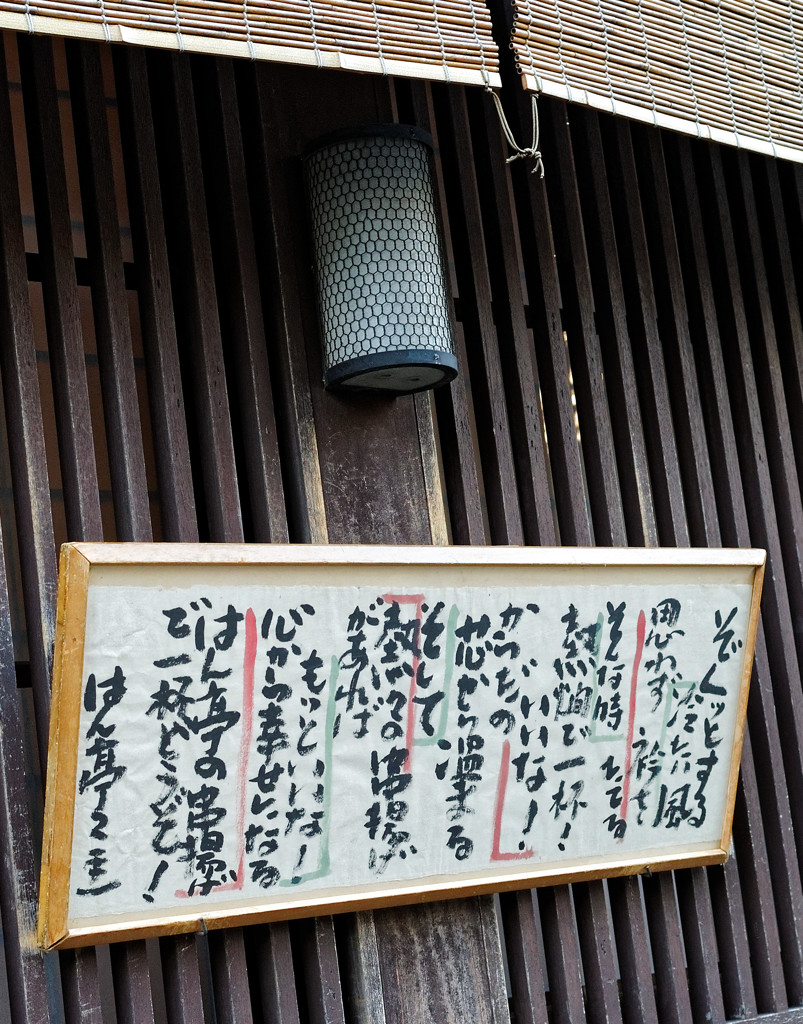 ぞくッとする
冷たい風
思わず 衿を
たてる
そんな時
熱燗で一杯!
いいな!
からだの
芯から温まる
そして
熱々の串揚げ
があれば
もっといいな!
心から幸せになる
はん亭の串揚げ
で一杯どうぞ!
はん亭 主